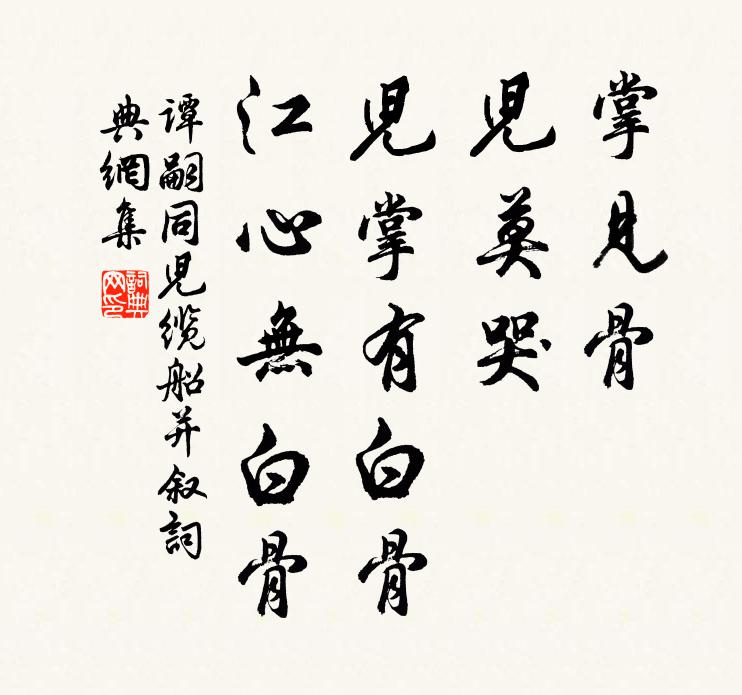 掌見骨
兒莫哭
兒掌有白骨
江心無白骨
谭嗣同兒缆船并叙詞
典網集
詞典网印